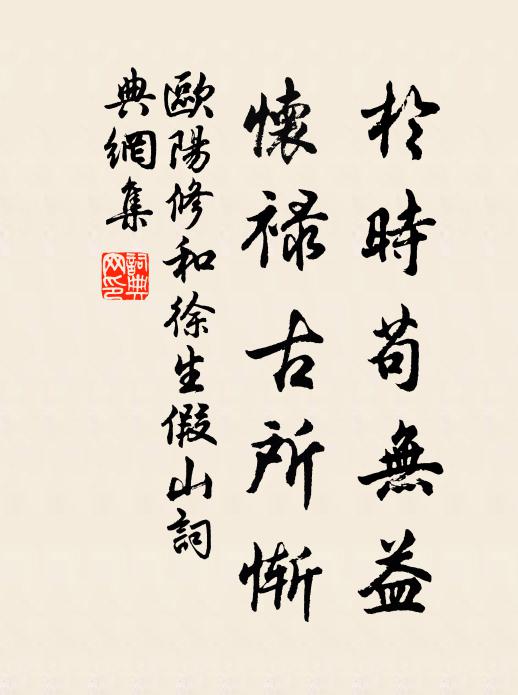 於時苟無益
懷禄古所慚
歐陽修和徐生假山詞
典網集
詞典網印